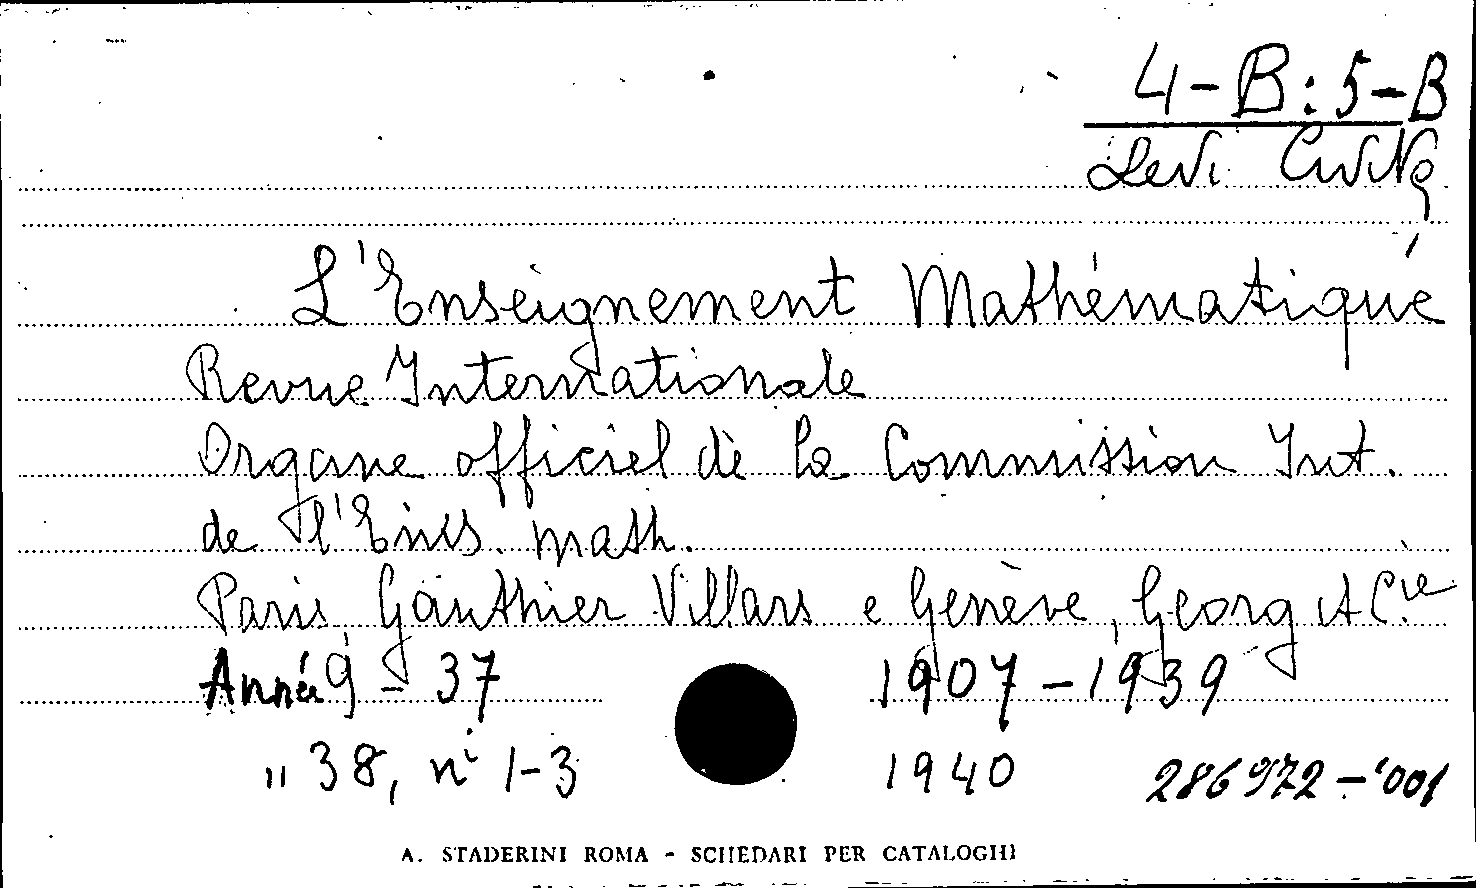 4-B:5-B
Levi Civita
L'Enseignement Mathématique
Revue Internationale
Organe officiel de la Commission Int.
de l'Ens. math.
Paris, Gauthier Villars e Genève, Georg et Cie
Année 9 - 37 1907 - 1939
" 38, ni 1-3 1940 286972-001
A. STADERINI ROMA - SCHEDARI PER CATALOGHI